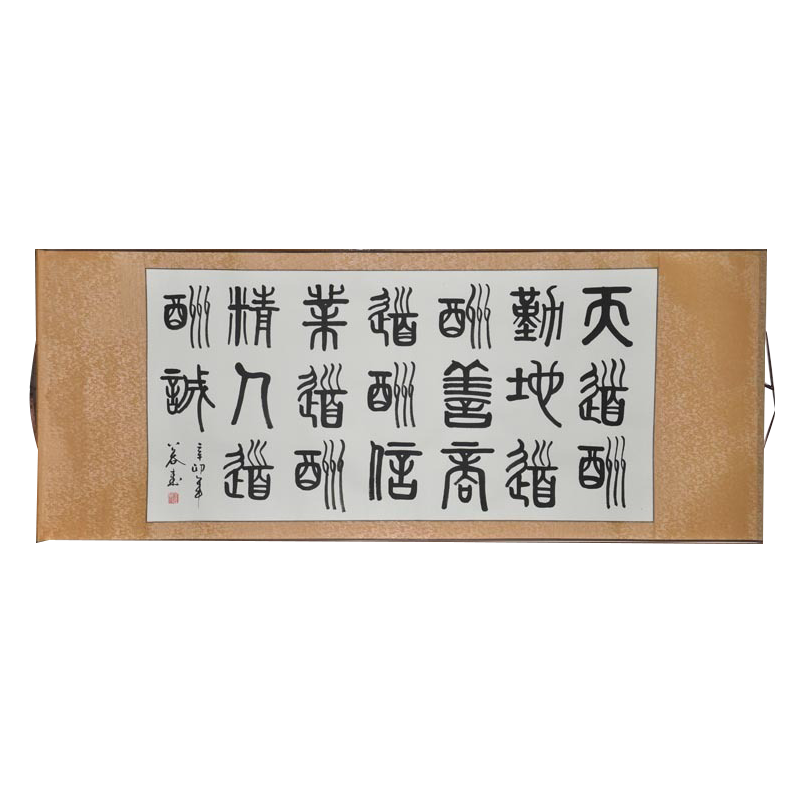 天道酬
勤地道
酬善商
道酬信
業道酬
精人道
酬誠
辛卯年